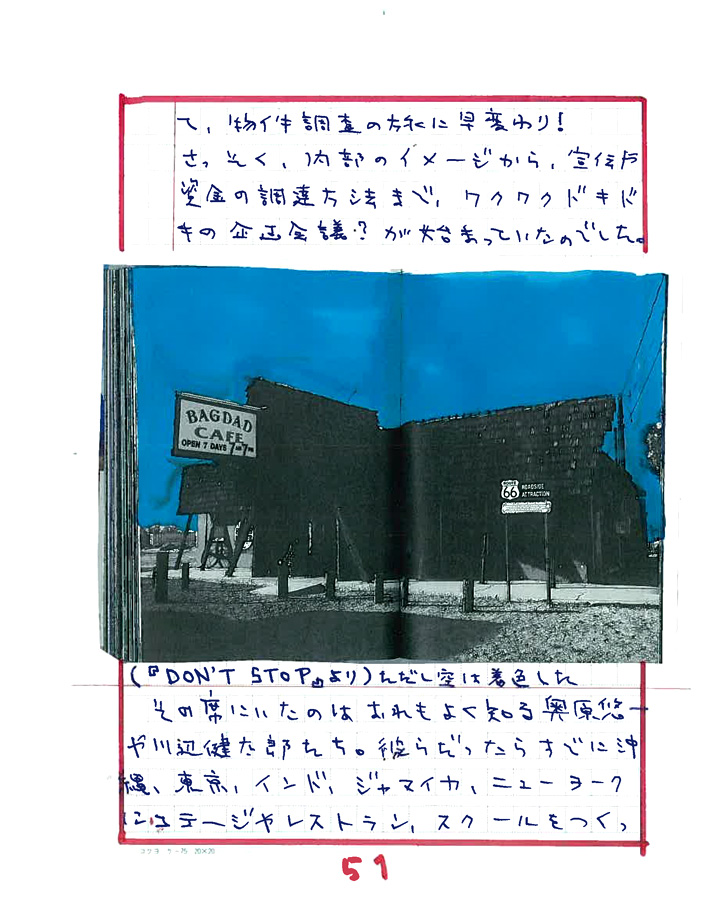 て、物件調査の旅に早変わり!
さっそく、内部のイメージから、宣伝や
資金の調達方法まで、ワクワクドキド
キの企画会議?が始まっていたのでした。
BAGDAD
CAFE
OPEN 7 DAYS 7AM 7PM
ROUTE
66
ROADSIDE
ATTRACTION
(『DON'T STOP』より)ただし空は着色した
その席にいたのはおれもよく知る奥原悠一
や川辺健太郎たち。彼らだったらすでに沖
縄、東京、インド、ジャマイカ、ニューヨーク
にステージやレストラン、スクールをつくっ
コクヨ ケ-75 20×20
51